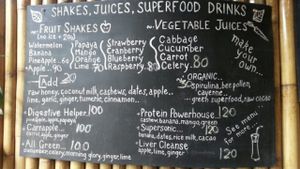 SHAKES, JUICES, SUPERFOOD DRINKS
FRUIT SHAKES
VEGETABLE JUICES
(no ice + 20)
Watermelon
Banana
Pineapple..60
Apple...
Papaya
Mango
Orange
Lime
Strawberry
Cranberry
Blueberry
Raspberry..80
Cabbage
Cucumber
Carrot
Celery..80
make
your
own...
Add 20
raw honey, coconut milk, cashews, dates, apple...
lime, garlic, ginger, turmeric, cinnamon...
ORGANIC..
spirulina, bee pollen,
green superfood, raw cacao
Digestive Helper 100
pineapple, apple, papaya
Carrapple....... 100
carrot, apple, ginger, lime
All Green... 100
cucumber, celery, morning glory, ginger, lime
Protein Powerhouse 120
cashews, banana, mango, green
Supersonic... 120
banana, dates, rice milk, cacao
Liver Cleanse 120
apple, lime, ginger
See
menu
for
more...